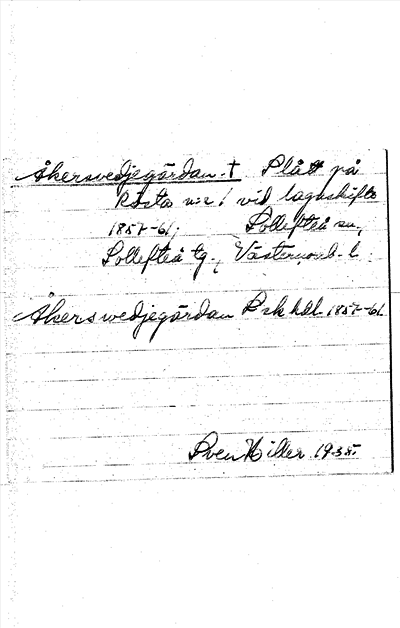 Åkersvedjegärdan. † Slått på
Rösta n:r 1 vid lagaskifte
1857-61, Sollefteå sn,
Sollefteå tg., Västernorrl. l.
Åkerswedjegärdan Lsk hdl. 1857-61.
Sven Hiller 1935.